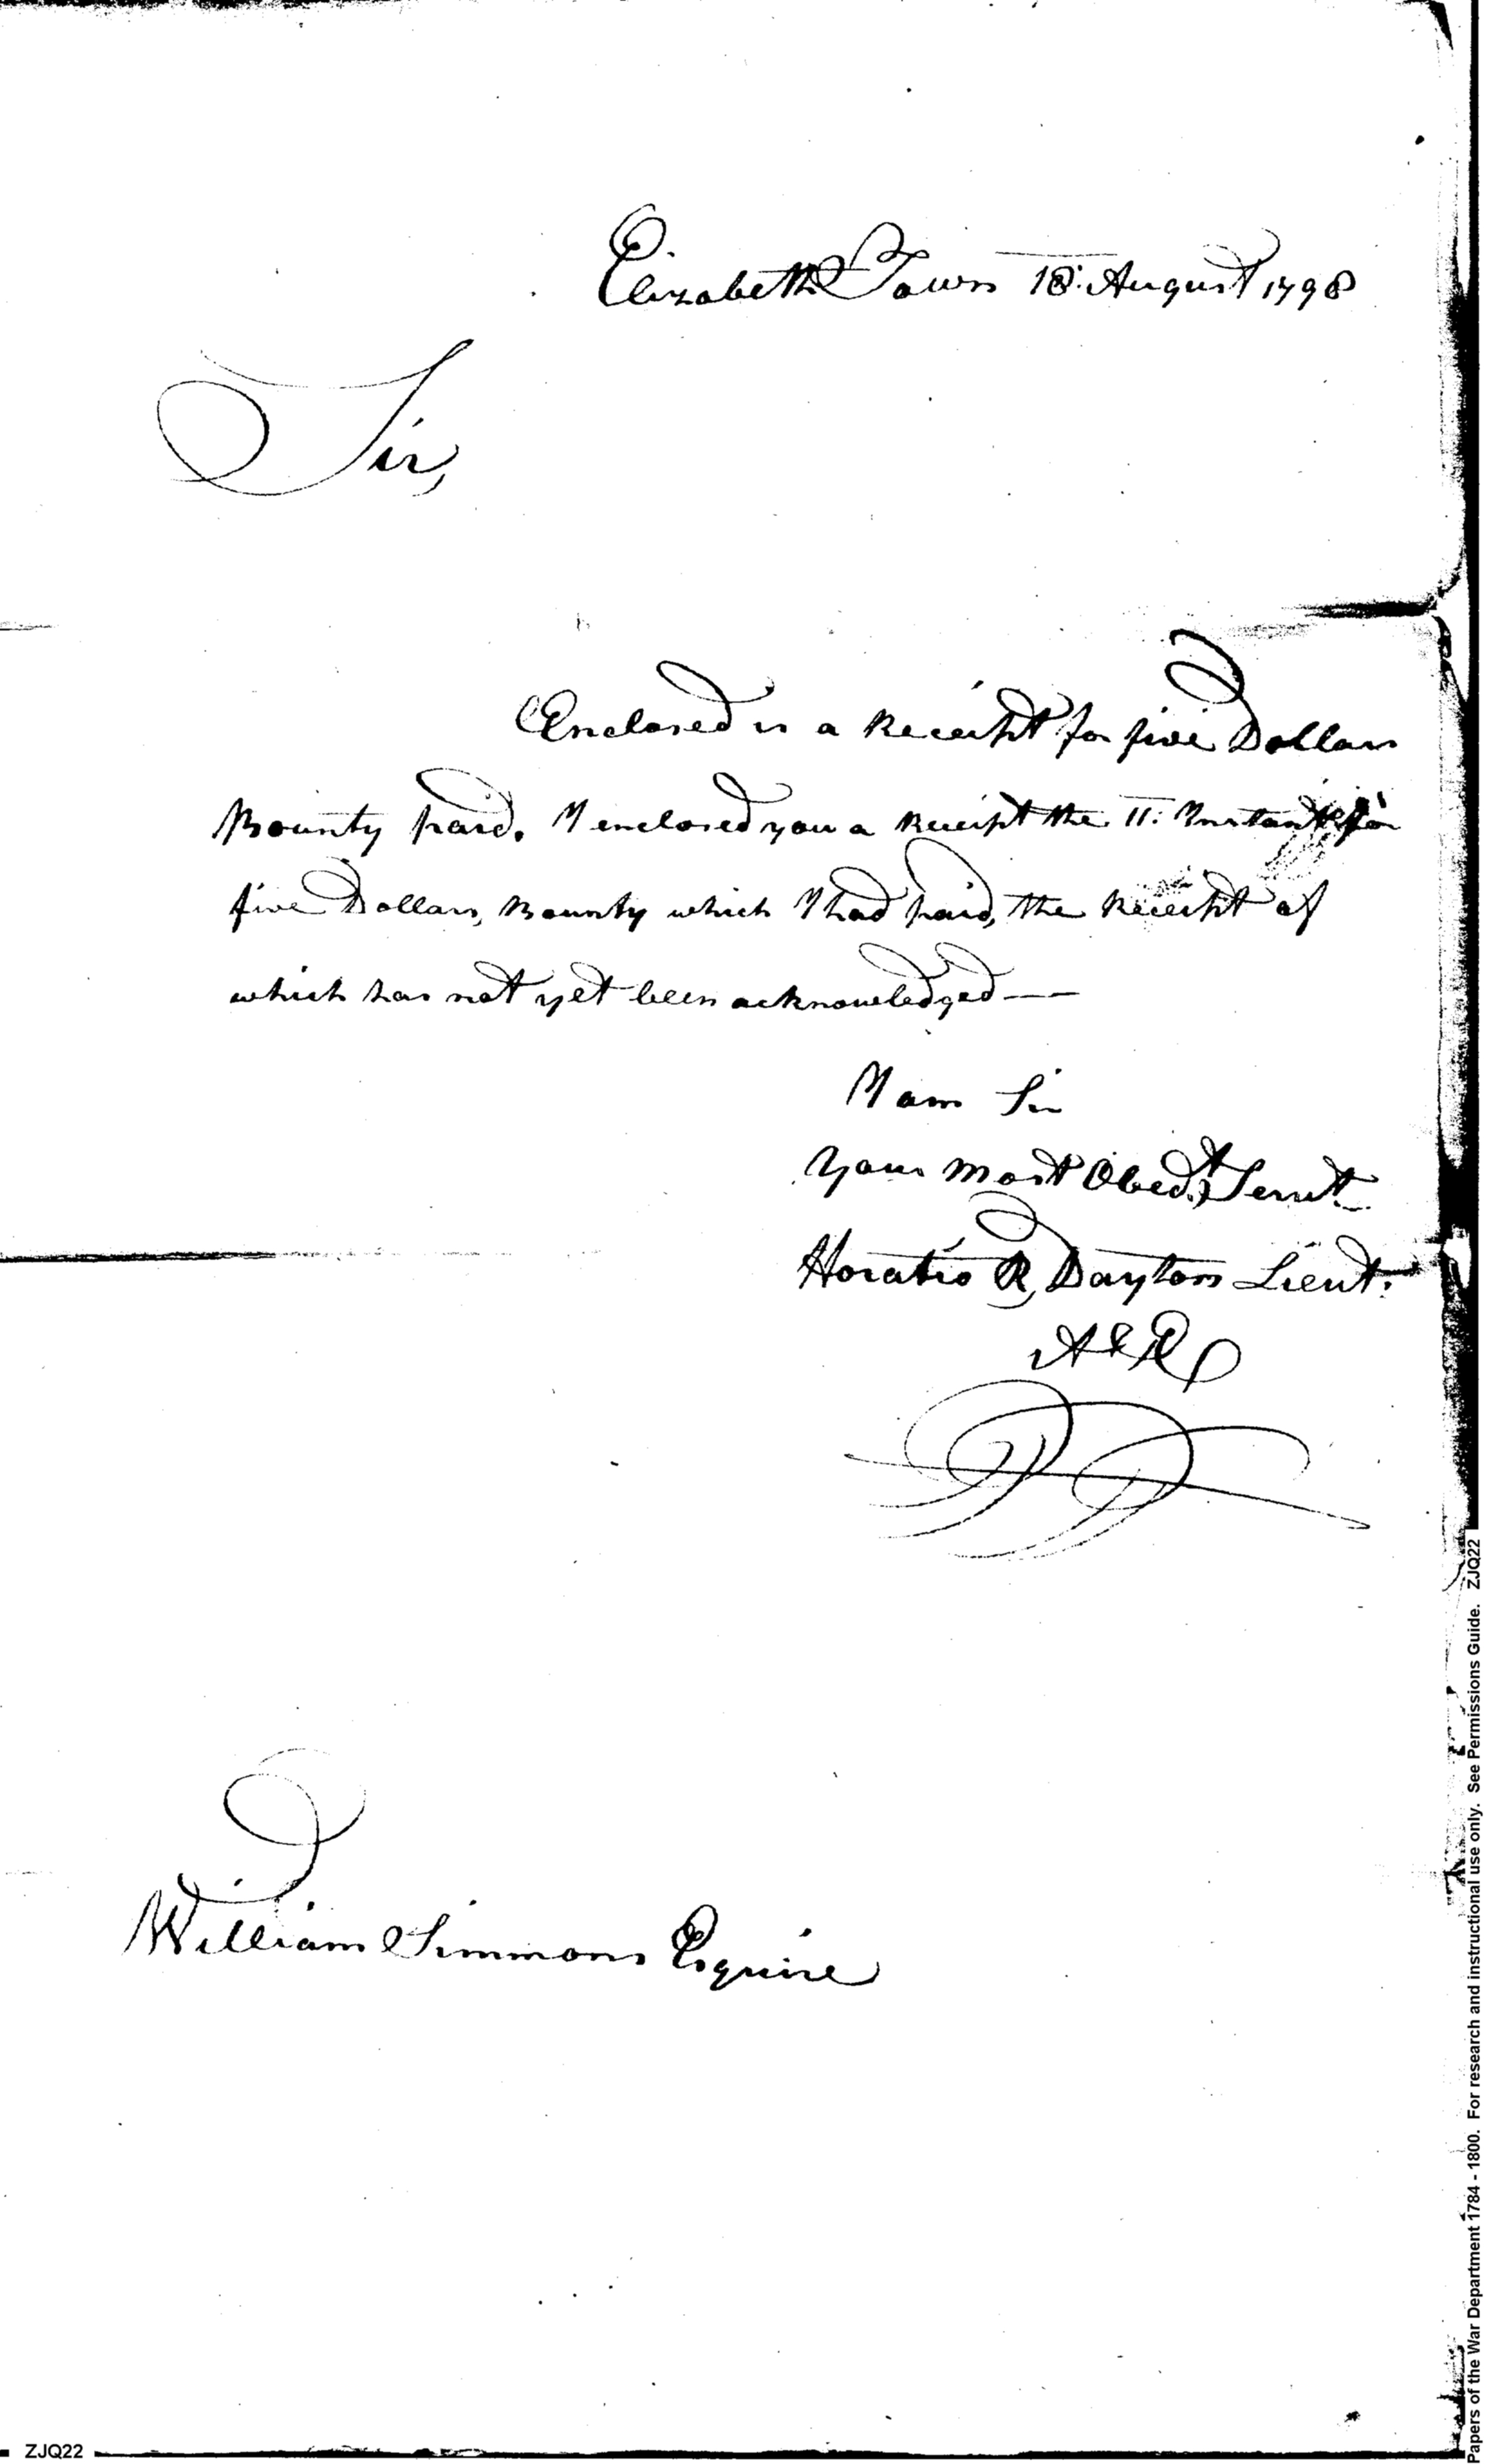 Elizabeth Town 18: August 1798
Sir,
Enclosed is a Receipt for five Dollars
Bounty paid. I enclosed you a Receipt the 11: Instant for
five Dollars, Bounty which I had paid, the Receipt of
which has not yet been acknowledged —
I am Sir
Your most Obed.t Servt
Horatio R, Dayton Lieut.
A & E
William Simmons Esquire
Papers of the War Department 1784 - 1800. For research and instructional use only. See Permissions Guide. ZJQ22
ZJQ22